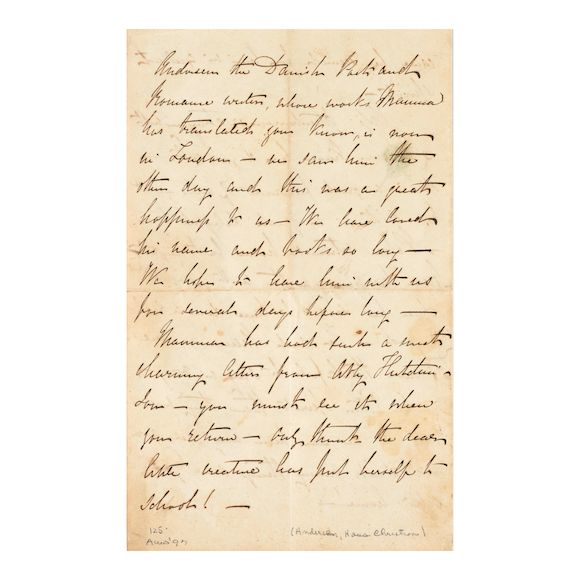 Andersen the Danish Poet and
Romance writer, whose works Mamma
has translated you know, is now
in London – we saw him the
other day and this was a great
happiness to us – We have loved
his name and books so long –
We hope to have him with us
for several days before long –
Mamma has had such a most
charming letter from Abby Hutchin-
son – you must see it when
you return – only think the dear
little creature has put herself to
school! –
125.
(Andersen, Hans Christian)